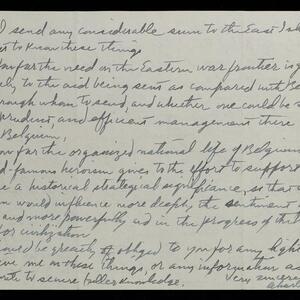 I send any considerable sum to the East I sh
to know these things
far the need on the Eastern war frontier is g
ly, to the aid being sent as compared with Be
rough whom to send, and whether one could be s
prudent, and efficient management there
Belgium,
far the organized national life of Belgium
d-famous heroism gives to the effort to support
a historical strategical significance, so that
would influence more deeply the sentiment
and more powerfully aid in the progress of the
for civilization
ould be greatly obliged to you for any light
ve me in these things or any information as
to secure fuller knowledge.
Very sincerely